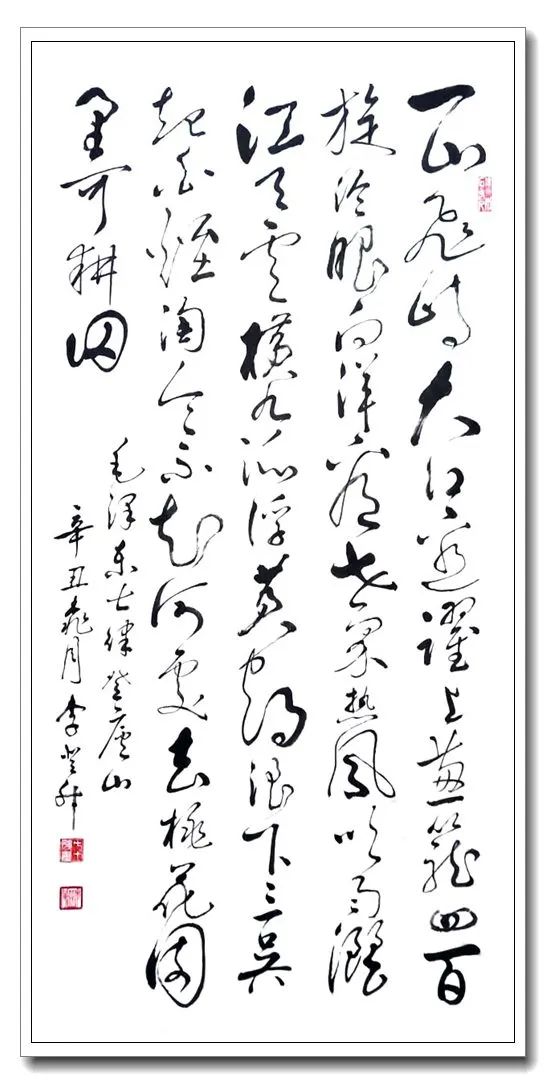 一山飛峙大江邊躍上葱蘢四百
旋冷眼向洋看世界热風吹雨灑
江天雲横九派浮黄鹤浪下三吴
起白煙淘令不知何處去桃花源
里可耕田
毛泽东七律登廬山
辛丑月李登